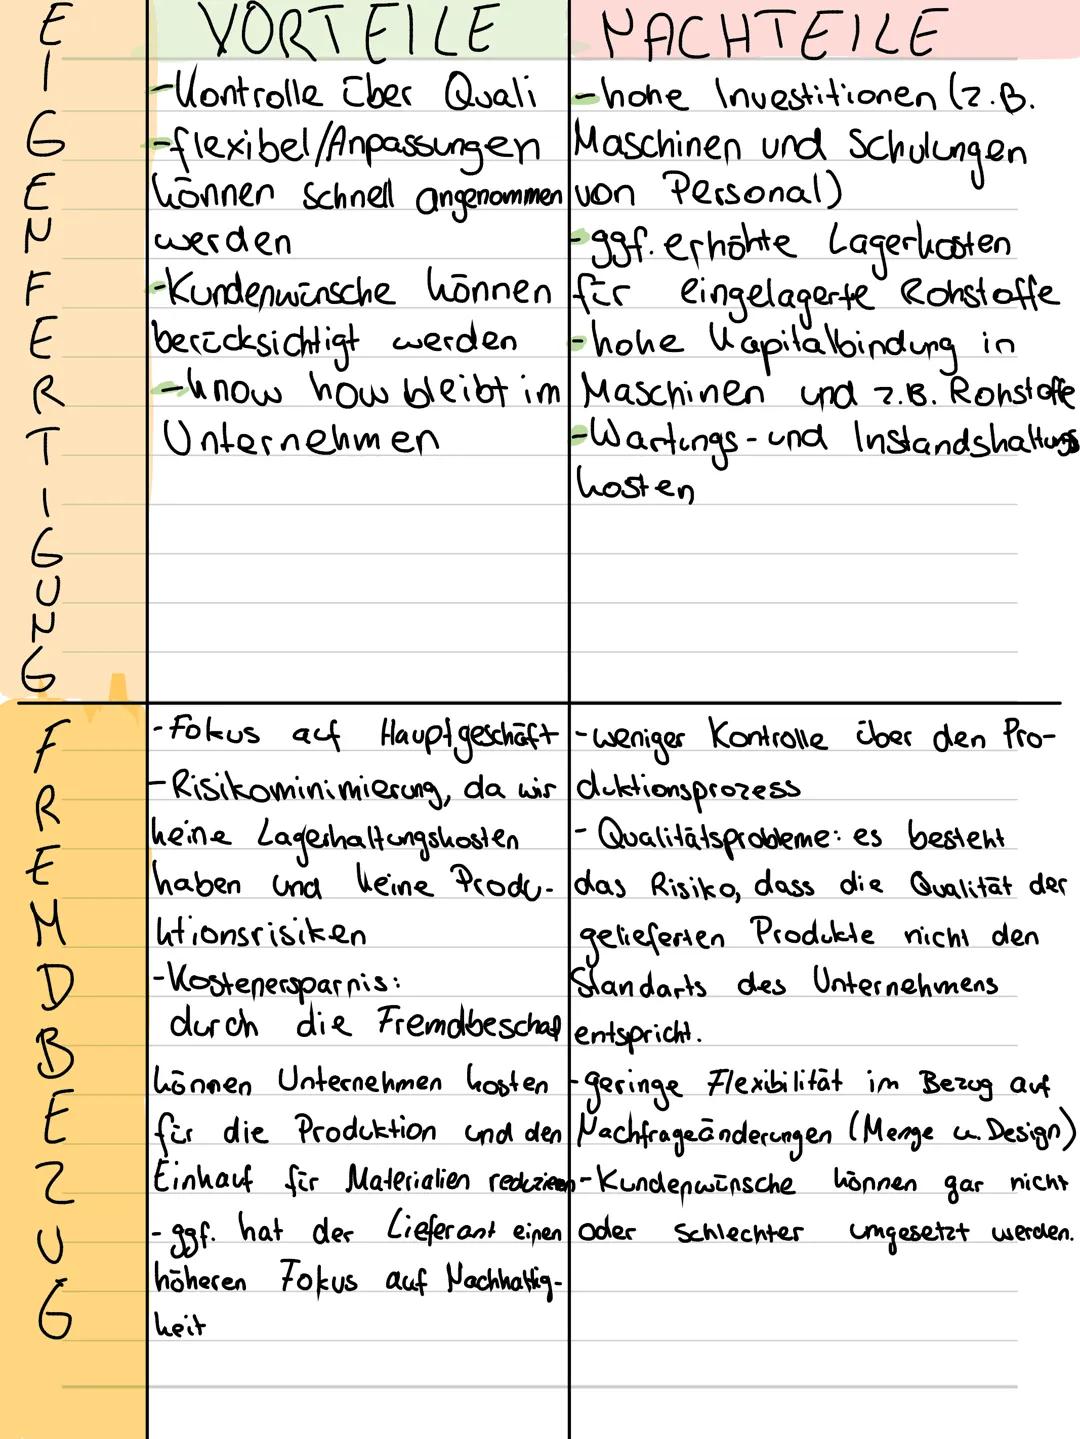 EIGENFERTIGUNG
VORTEILE
-Kontrolle über Quali
-flexibel/Anpassungen
können schnell angenommen
werden
-Kundenwünsche können
berücksichtigt werden
-know how bleibt im
Unternehmen
NACHTEILE
-hohe Investitionen (z.B.
Maschinen und Schulungen
von Personal)
-ggf. erhöhte Lagerkosten
für eingelagerte Rohstoffe
-hohe Kapitalbindung in
Maschinen und z.B. Rohstoffe
-Wartungs- und Instandshaltungs
kosten
FREMDBEZUG
-Fokus auf Hauptgeschäft
-Risikominimierung, da wir
keine Lagerhaltungskosten
haben und keine Produ-
ktionsrisiken
-Kostenersparnis:
durch die Fremdbeschaf
können Unternehmen kosten
für die Produktion und den
Einkauf für Materialien reduzieren
- ggf. hat der Lieferant einen
höheren Fokus auf Nachhaltig-
keit
-weniger Kontrolle über den Pro-
duktionsprozess
- Qualitätsprobleme: es besteht
das Risiko, dass die Qualität der
gelieferten Produkte nicht den
Standarts des Unternehmens
entspricht.
-geringe Flexibilität im Bezug auf
Nachfrageänderungen (Menge u. Design)
-Kundenwünsche können gar nicht
oder schlechter umgesetzt werden.